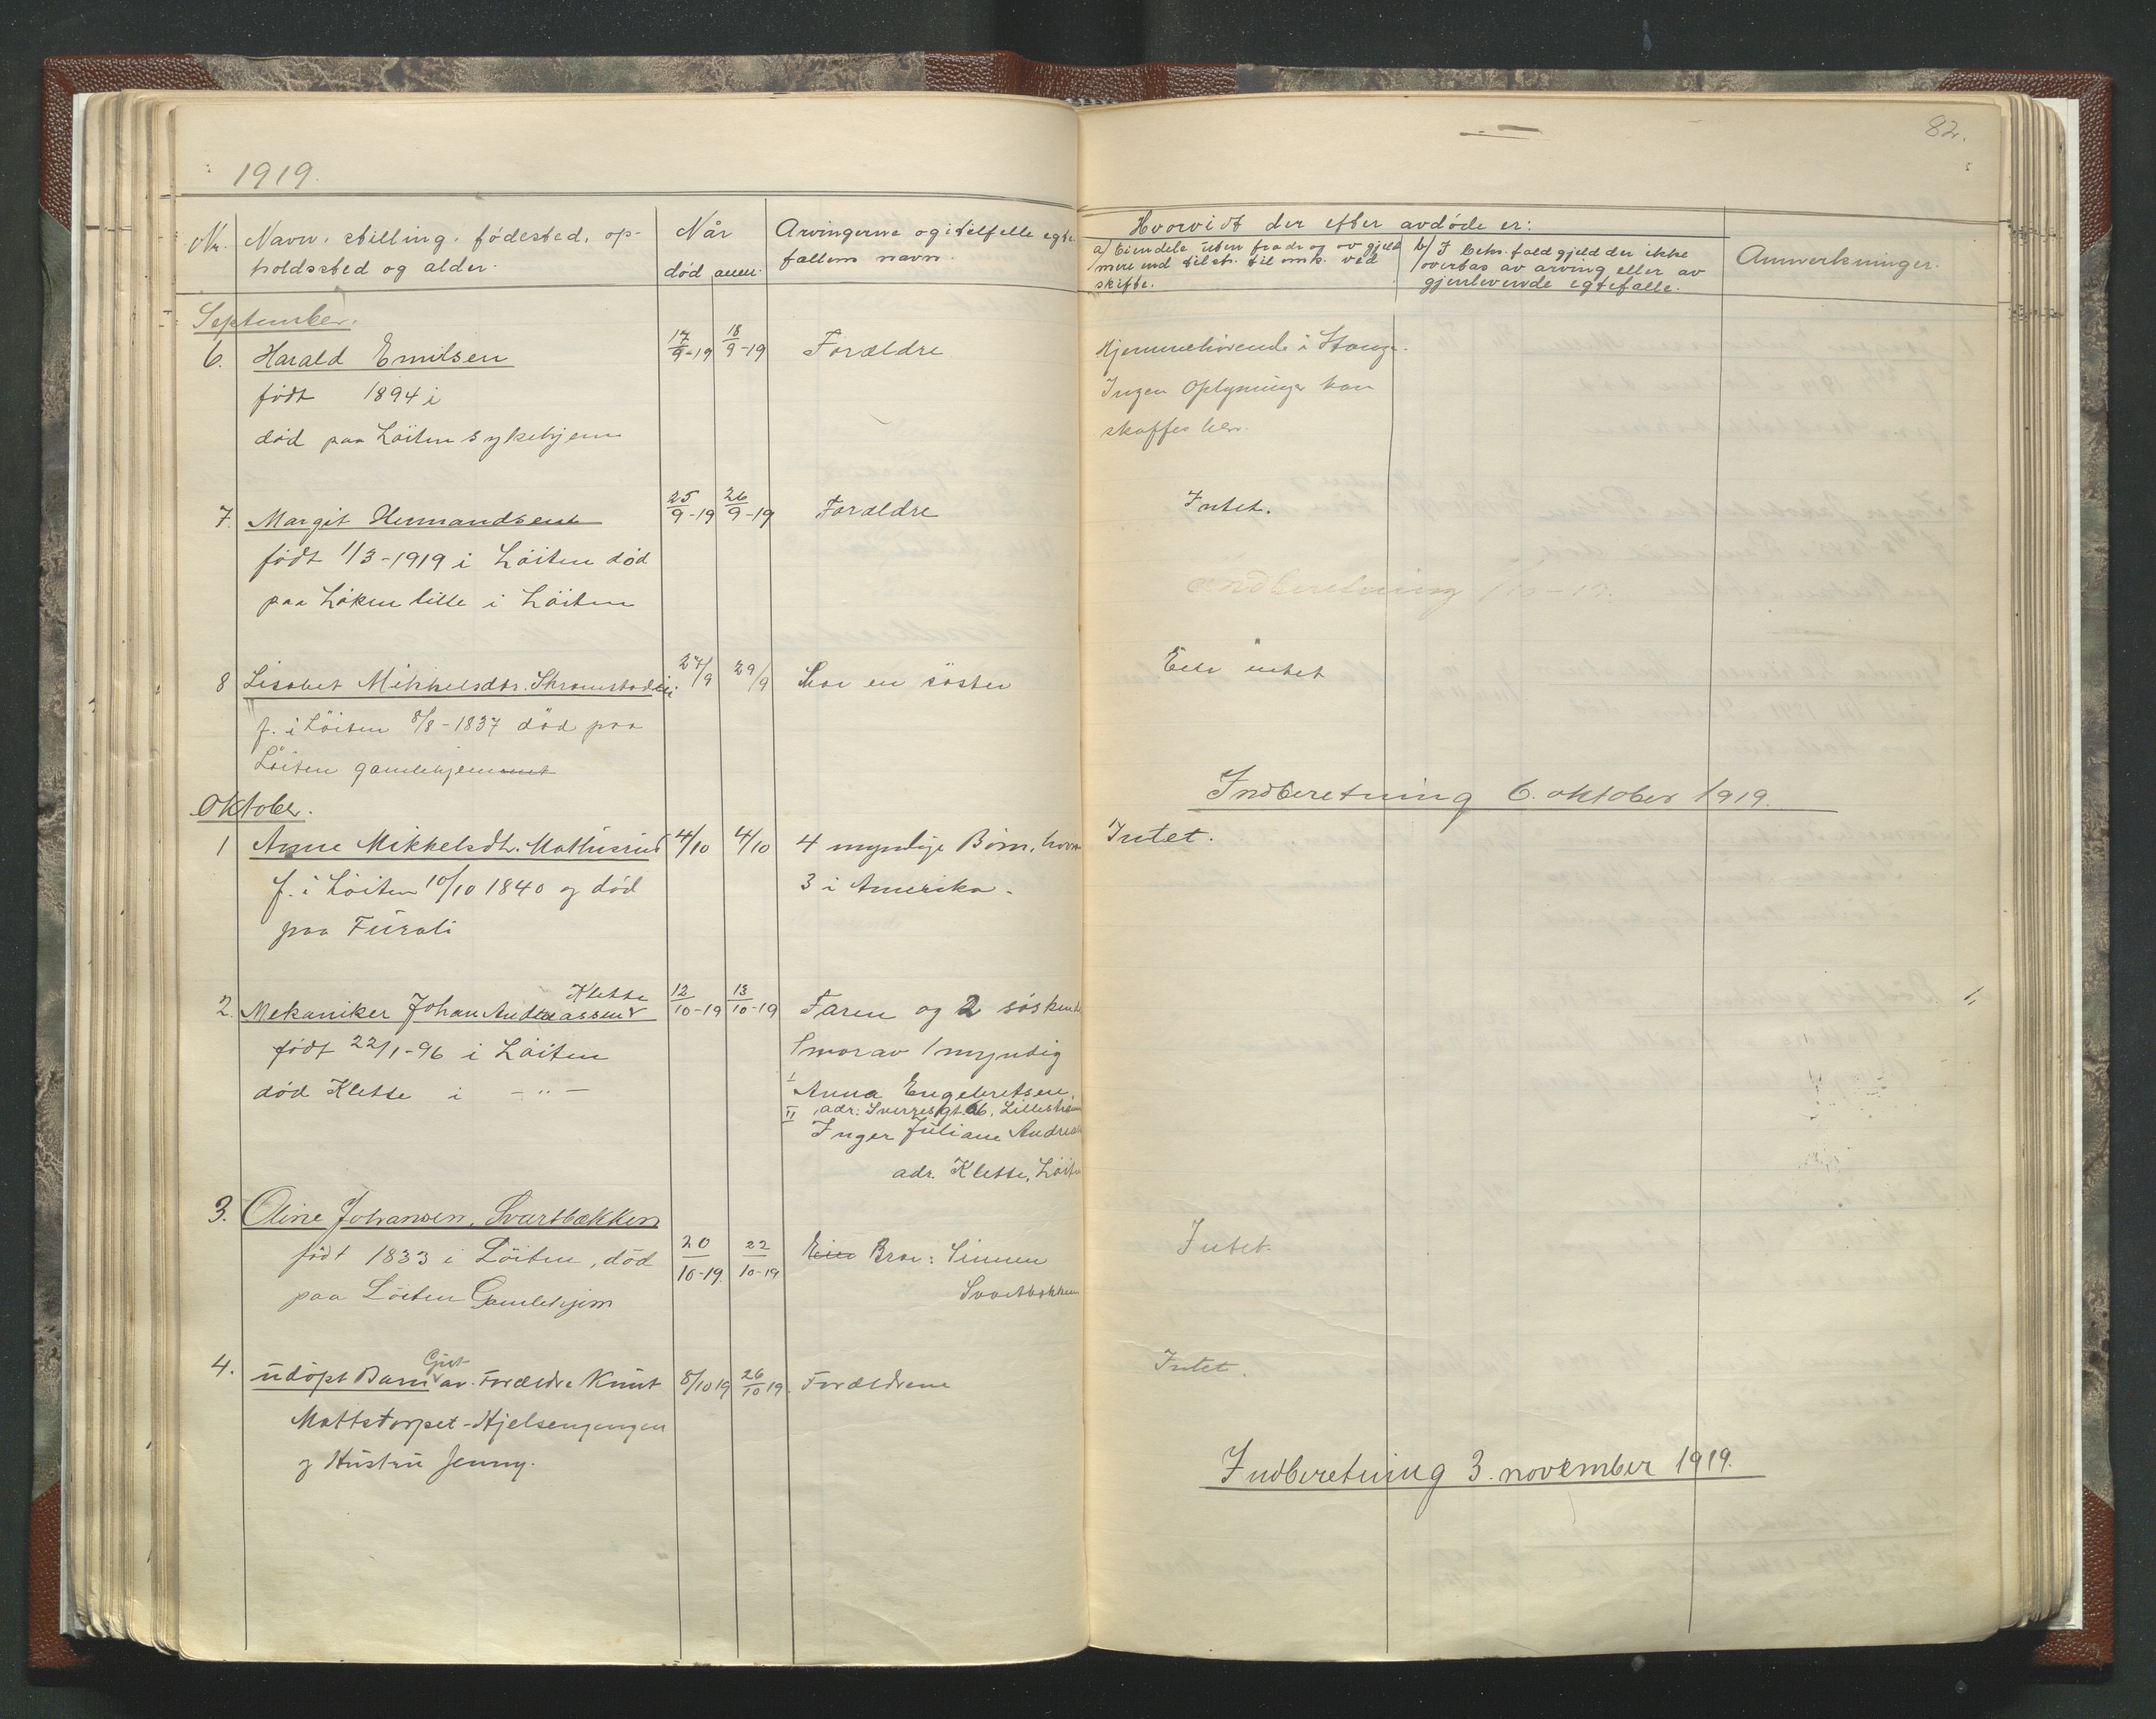 1919.
82.
Nr.
Navn, stilling, fødested, op-
holdssted og alder.
Når
død anm.
Arvingerne og i tilfelle egte-
fallem navn.
Hvorvidt der efter avdøde er:
a/ Eiendele uten fradr. og av gjeld
mere end tilstr. til omk. ved
skifte.
b/ I beh. fald gjeld der ikke
overtas av arving eller av
gjenlevende egtefalle.
Anmerkninger.
September.
6. Harald Emilsen 17/9-19 18/9-19 Forældre Hjemmehørende i Stange.
født 1894 i Ingen Oplysninger kan
død paa Löiten sykehjem skaffes her.
7. Margit Hermandsen 25/9-19 26/9-19 Forældre Intet.
født 1/3-1919 i Löiten død
paa Löken lille i Löiten
Indberetning
8 Lisabet Mikkelsdtr. 27/9 29/9 Har en söster Eier intet
f. i Löiten 8/8-1837 död paa
Löiten gamlehjemmet
Indberetning 6. oktober 1919.
Oktober.
1 Anne Mikkelsdt. Mathisrud 4/10 4/10 4 myndige Börn, hvorav Intet.
f. i Löiten 10/10 1840 og död
3 i Amerika.
paa Furuli
Klette
2. Mekaniker Johan Andreassen 12/10-19 13/10-19 Faren og 2 söskende
født 22/1-96 i Löiten
hvorav 1 myndig
død Klette i -"-
I Anna Engebretsen,
II adr: Sverresgt. 6, Lilleström
Inger Juliane Andreas
adr. Klette, Löiten
3. Oline Johansen, Svartbækken
født 1833 i Löiten, död 20/10-19. 22/10-19 Een Bror: Simen Intet.
paa Löiten Gamlehjem Svartbækken
Gut
4. udöpt Barn av Forældre Knut 8/10 19 26/10 19. Forældrene Intet.
Mattstorpet-Hjelsengengen
og Hustru Jenny.
Indberetning 3. november 1919.